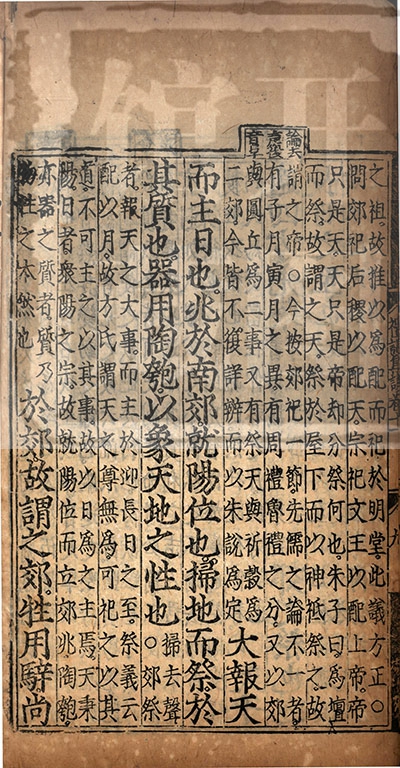 之祖故推以為配而祀於明堂此義方正〇
問郊祀后稷以配天宗祀文王以配上帝帝
只是天天只是帝却分祭何也朱子曰為壇
而祭故謂之天祭於屋下而以神祇祭之故
論去
聲復
謂之帝〇今按郊祀一節先儒之論不一者
有子月寅月之異有周禮魯禮之分又以郊
與圓丘為二事又有祭天與祈穀為
二郊今皆不復詳辨而以朱說為定
大報天
而主日也兆於南郊就陽位也掃地而祭於
其質也器用陶匏以象天地之性也
〇掃去聲
〇郊祭
者報天之大事而主於迎長日之至祭義云
配以月故方氏謂天之尊無為可祀之以其
道不可主之以其事故以日為之主焉天秉
陽日者衆陽之宗故就陽位而立郊兆陶匏
亦器之質者質乃
物性之本然也
於郊故謂之郊牲用騂尚